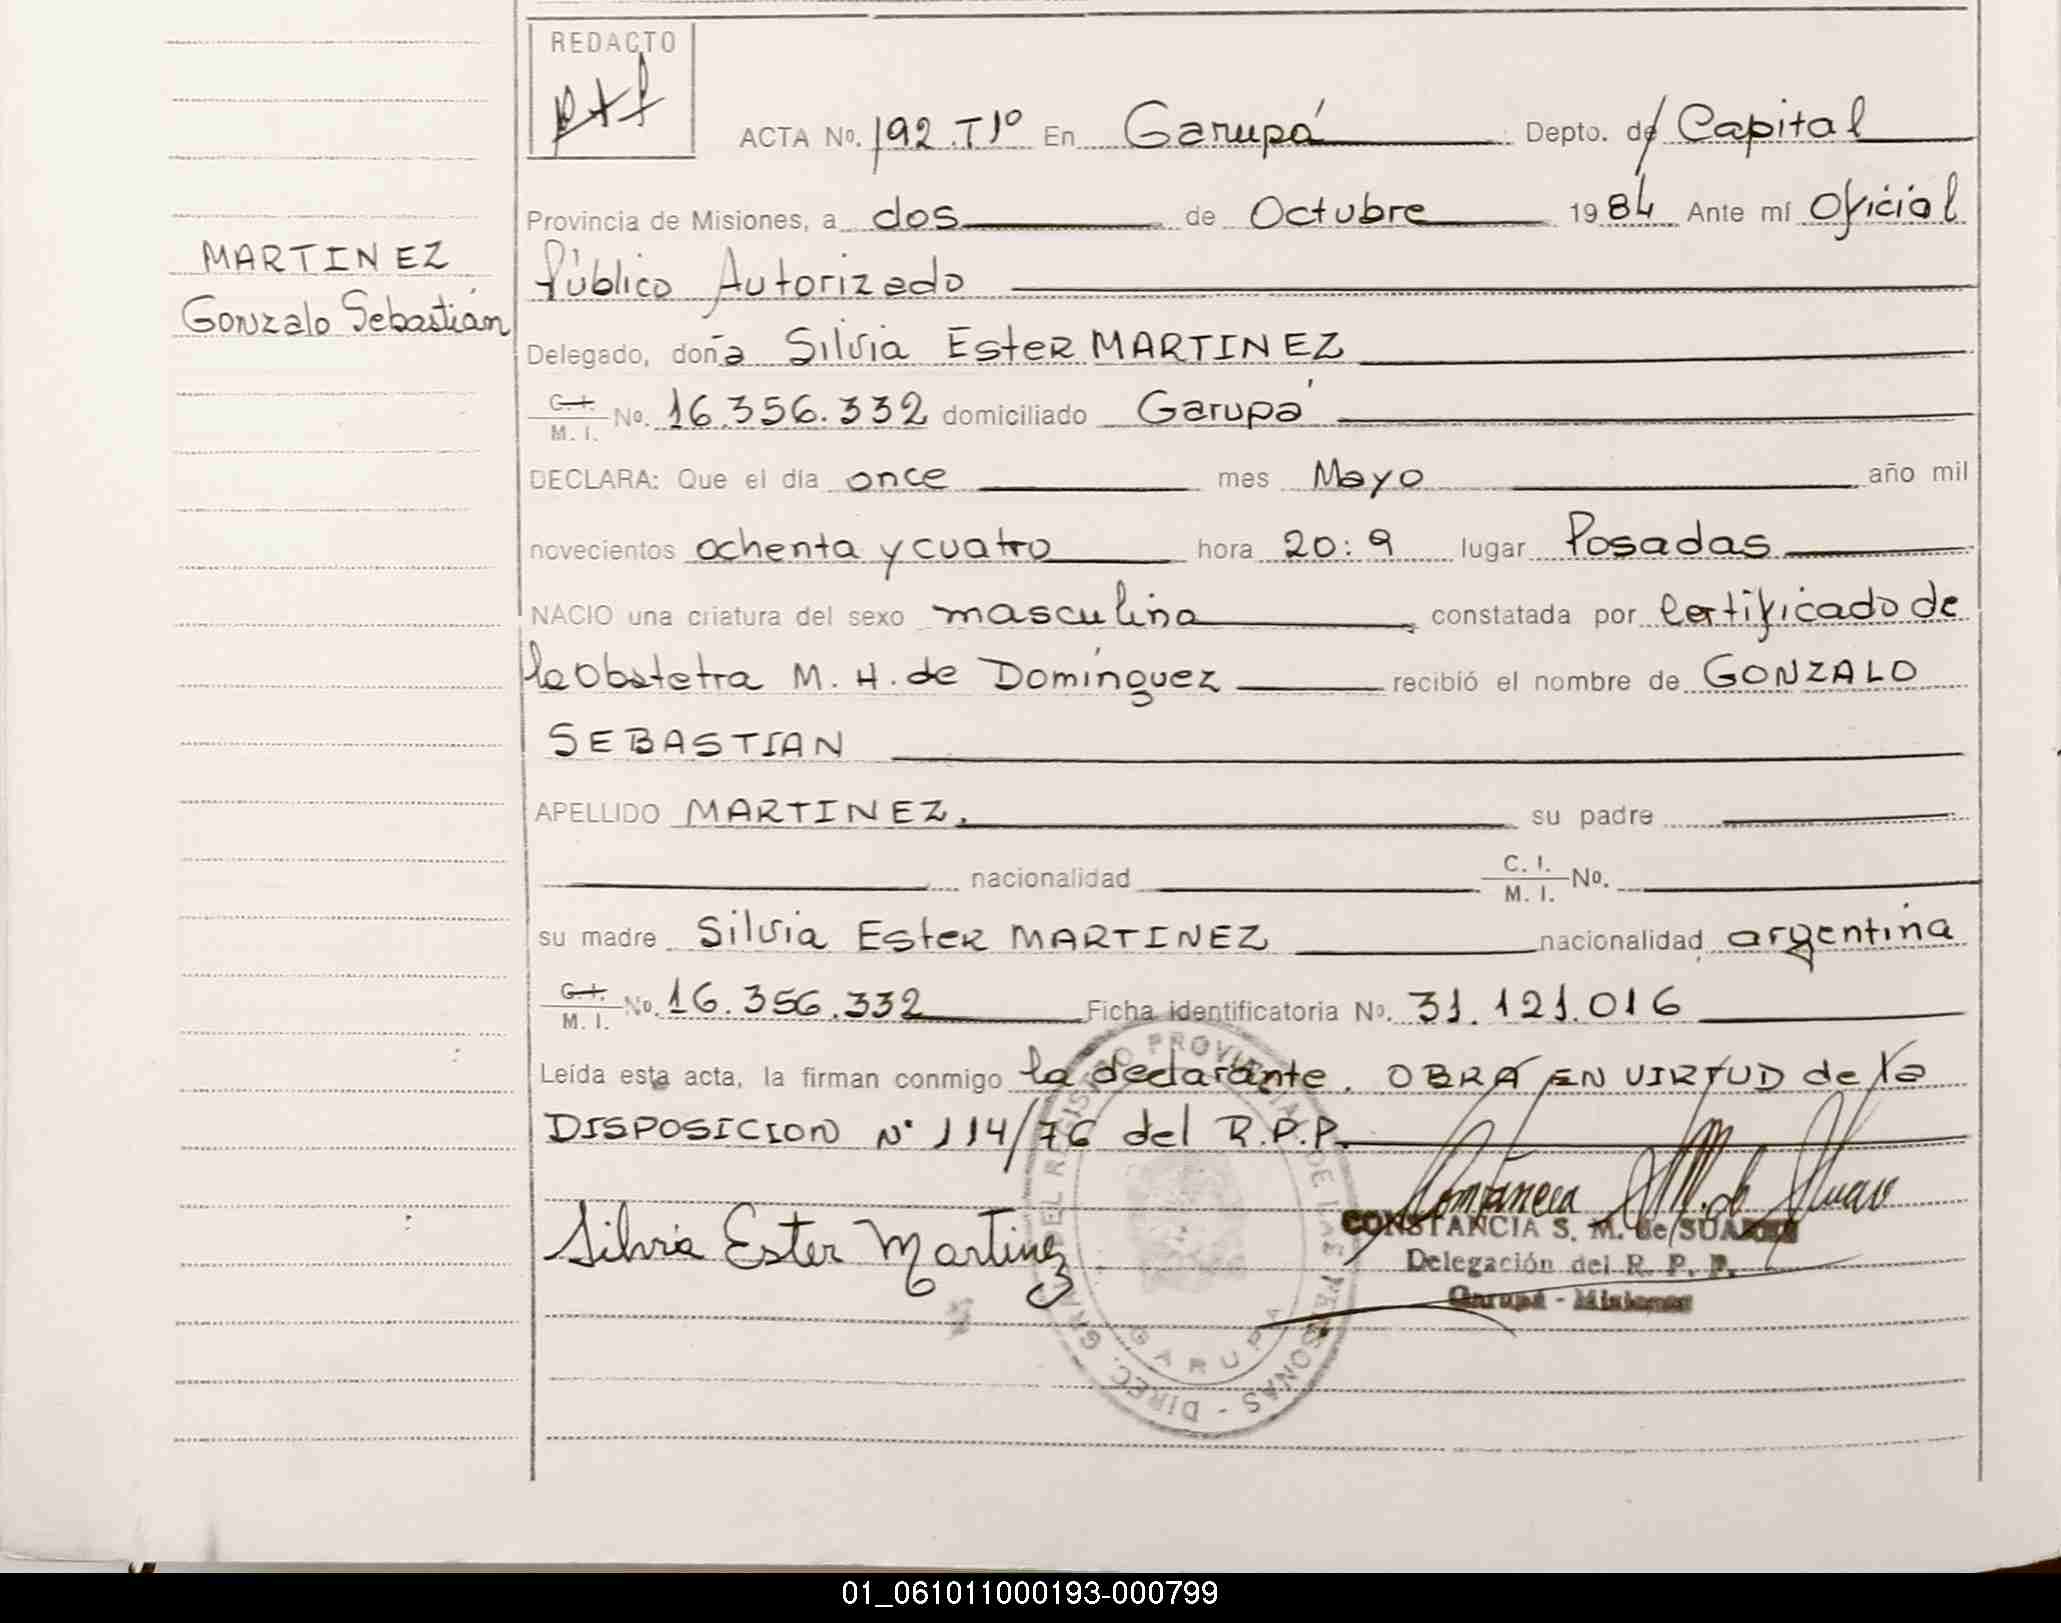 REDACTO
ACTA No. 192. T1º En Garupá Depto. de Capital
Provincia de Misiones, a dos de Octubre 1984 Ante mí Oficial
Público Autorizado
MARTINEZ
Gonzalo Sebastián
Delegado, doña Silvia Ester MARTINEZ
C. I. / M. I. No. 16.356.332 domiciliado Garupá
DECLARA: Que el día once mes Mayo año mil
novecientos ochenta y cuatro hora 20:9 lugar Posadas
NACIO una criatura del sexo masculino constatada por Certificado de
la Obstetra M. H. de Domínguez recibió el nombre de GONZALO
SEBASTIAN
APELLIDO MARTINEZ. su padre
nacionalidad C. I. / M. I. No.
su madre Silvia Ester MARTINEZ nacionalidad argentina
C. I. / M. I. No. 16.356.332 Ficha identificatoria No. 31.121.016
Leída esta acta, la firman conmigo la declarante. OBRA EN VIRTUD de la
DISPOSICION Nº 114/76 del R.P.P.
Silvia Ester Martinez
CONSTANCIA S. M. de SUAREZ
Delegación del R. P. P.
Garupá - Misiones
DIREC. GRAL. DEL REGISTRO PROVINCIAL DE LAS PERSONAS -
GARUPA
01_061011000193-000799